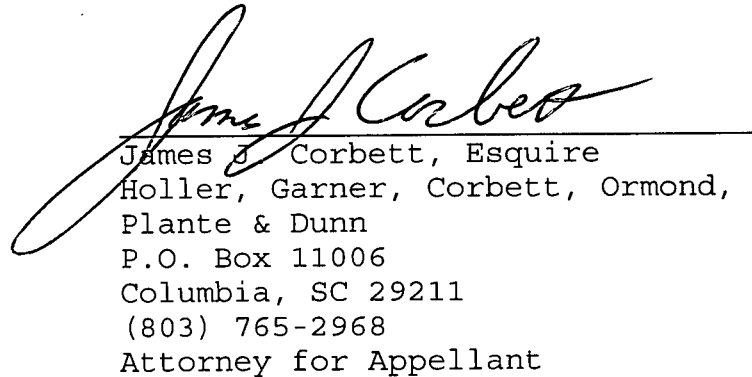 James J Corbett
James J. Corbett, Esquire
Holler, Garner, Corbett, Ormond,
Plante & Dunn
P.O. Box 11006
Columbia, SC 29211
(803) 765-2968
Attorney for Appellant